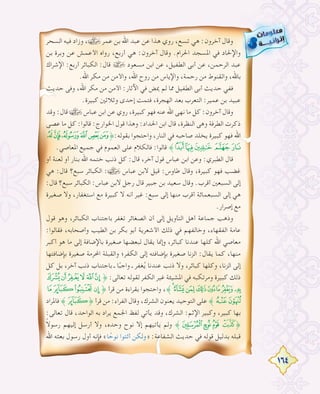 معلومات قرآنية
وقال آخرون: هي تسع، روي هذا عن عبد الله بن عمر، وزاد فيه السحر
والإلحاد في المسجد الحرام. وقال آخرون: هي أربع، رواه الاعمش عن وبرة بن
عبد الرحمن، عن أبي الطفيل، عن ابن مسعود قال: الكبائر أربع: الإشراك
بالله، والقنوط من رحمة، والإياس من روح الله، والامن من مكر الله.
ففي حديث أبي الطفيل مما لم يمض في الآثار: الامن من مكر الله، وفى حديث
عبيد بن عمير: التعرب بعد الهجرة، فتمت إحدى وثلاثين كبيرة.
وقال آخرون: كل ما نهى الله عنه فهو كبيرة، روي عن ابن عباس قال: وقد
ذكرت الطرفة وهى النظرة، قال ابن الحداد: وهذا قول الخوارج: قالوا: كل ما عصى
الله فهو كبيرة يخلد صاحبه في النار، واحتجوا بقوله: ﴿وَمَنْ يَعْصِ اللَّهَ وَرَسُولَهُ فَإِنَّ لَهُ
نَارَ جَهَنَّمَ خَالِدِينَ فِيهَا أَبَدًا﴾ قالوا: فالكلام على العموم في جميع المعاصي.
قال الطبري: وعن ابن عباس قول آخر، قال: كل ذنب ختمه الله بنار أو لعنة أو
غضب فهو كبيرة، وقال طاوس: قيل لابن عباس: الكبائر سبع؟ قال: هي
إلى السبعين أقرب. وقال سعيد بن جبير قال رجل لابن عباس: الكبائر سبع؟ قال:
هي إلى السبعمائة أقرب منها إلى سبع؛ غير انه لا كبيرة مع استغفار، ولا صغيرة
مع إصرار.
وذهب جماعة اهل التأويل إلى ان الصغائر تغفر باجتناب الكبائر، وهو قول
عامة الفقهاء، وخالفهم في ذلك الاشعرية أبو بكر بن الطيب واصحابه، فقالوا:
معاصي الله كلها عندنا كبائر، وإنما يقال لبعضها صغيرة بالإضافة إلى ما هو أكبر
منها، كما يقال: الزنا صغيرة بإضافته إلى الكفر؛ والقبلة المحرمة صغيرة بإضافتها
إلى الزنا، وكلها كبائر، ولا ذنب عندنا يُغفر واجبًا، باجتناب ذنب آخر، بل كل
ذلك كبيرة ومرتكبه في المشيئة غير الكفر لقوله تعالى: ﴿إِنَّ اللَّهَ لَا يَغْفِرُ أَنْ يُشْرَكَ
بِهِ وَيَغْفِرُ مَا دُونَ ذَلِكَ لِمَنْ يَشَاءُ﴾، واحتجوا بقراءة من قرا ﴿إِنْ تَجْتَنِبُوا كَبَائِرَ مَا
تُنْهَوْنَ عَنْهُ﴾ على التوحيد يعنون الشرك، وقال الفراء: من قرا ﴿كَبَائِرَ﴾ فالمراد
بها كبير، وكبير الإثم: الشرك، وقد يأتي لفظ الجمع يراد به الواحد، قال تعالى:
﴿كَذَّبَتْ قَوْمُ نُوحٍ الْمُرْسَلِينَ﴾ ولم يأتيهم إلا نوح وحده، ولا ارسل إليهم رسولاً
قبله بدليل قوله في حديث الشفاعة: «ولكن ائتوا نوحًا» فإنه أول رسول بعثه الله
١٦٤